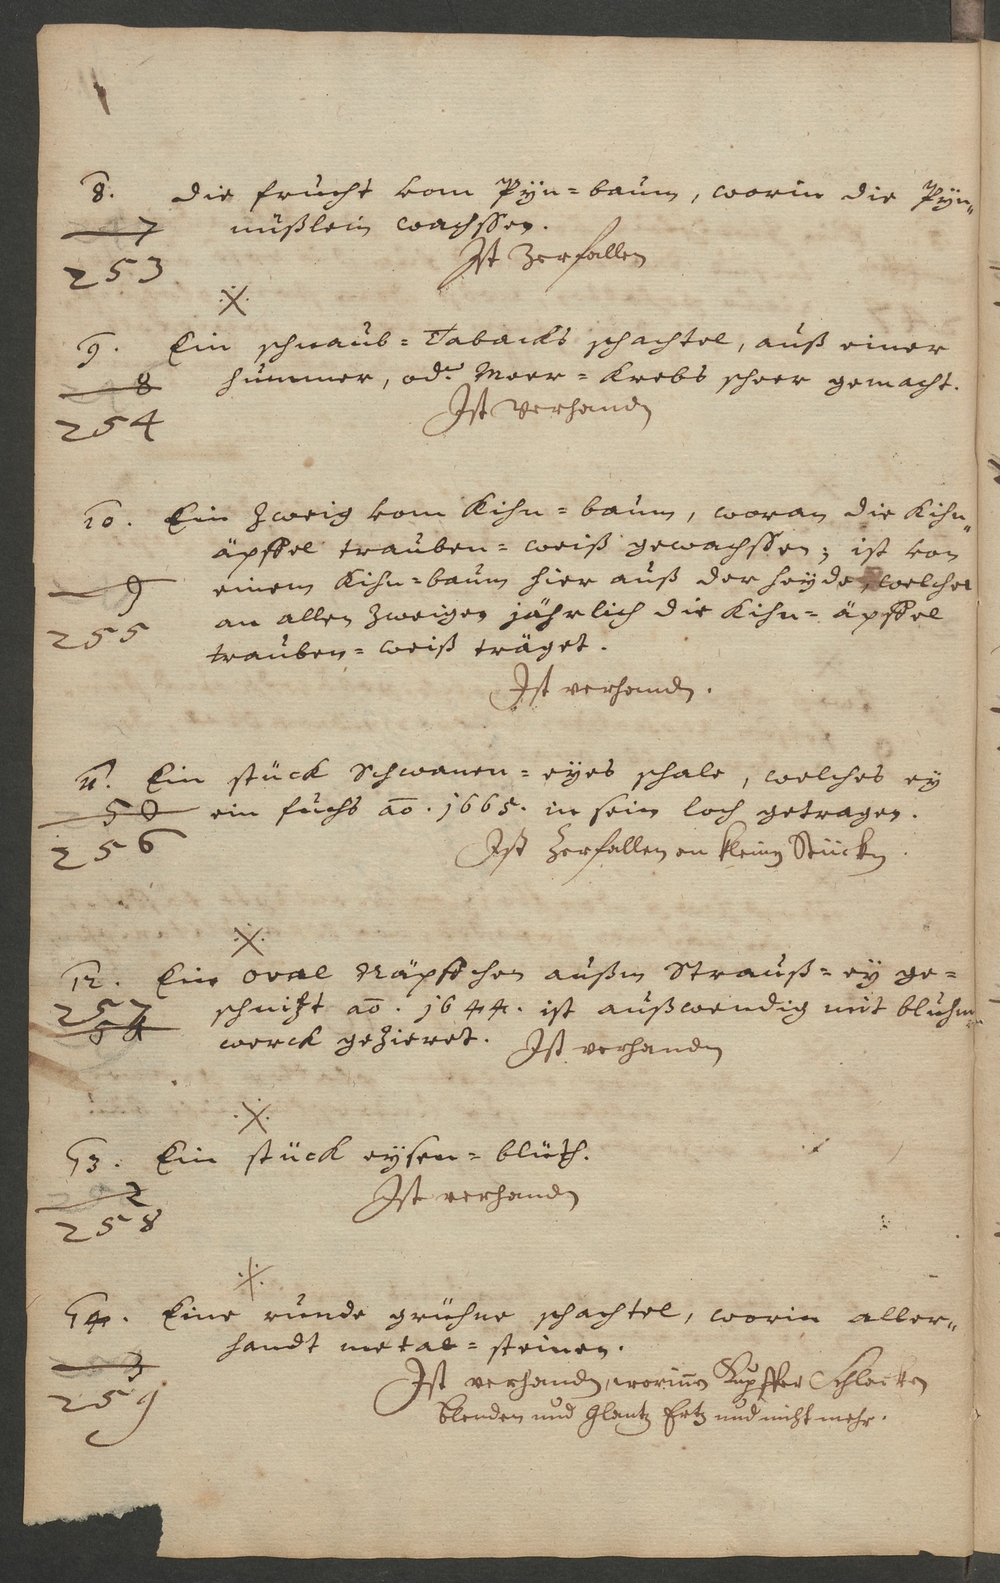 8. Die frucht vom Pÿn=baum, worin die Pÿn„
7 nüßlein wachssen.
253 Ist Zerfallen
9. Ein schnaub=Tabacks schachtel, auß einer
8 hummer, od. Meer=Krebs scheer gemacht.
254 Ist verhand
10. Ein Zweig vom Kihn=baum, woran die Kihn„
äpffel trauben=weiß gewachssen; ist von
9 einem Kihn=baum hier auß der heÿde, welcher
255 an allen Zweigen jährlich die Kihn=äpffel
trauben=weiß träget.
Ist verhand.
11. Ein stück Schwanen=eÿes schale, welches eÿ
50 ein fuchs ao. 1665. in sein loch getragen.
256 Ist Zerfallen en kleine Stücke.
12. Ein oval Näpffchen außm Strauß=eÿ ge=
257 schnitzt ao. 1644. ist außwendig mit bluhm=
51 werck gezieret. Ist verhanden
13. Ein stück eÿsen=blüth.
2 Ist verhand
258
14. Eine runde grühne schachtel, worin aller„
handt metal=steinen.
3 Ist verhand, worinn Kupffer Schlacken
259 blenden und Glantz Ertz und nicht mehr.